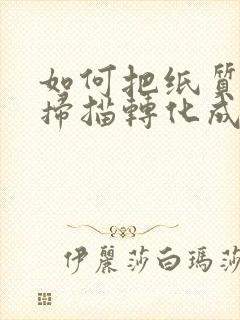 如何把纸质
掃描轉化成
伊麗莎白瑪莎